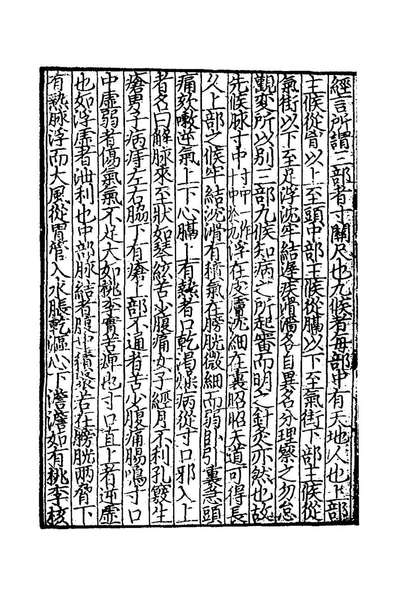 經言所謂三部者寸關尺也九候者每部中有天地人也上部
主候從胷以上至頭中部主候從膈以下至氣街下部主候從
氣街以下至足浮沈牢結遲疾滑濇各自異名分理察之勿怠
觀變所以别三部九候知病之所起審而明之針灸亦然也故
先候脉寸中寸中一作寸中於九浮在皮膚沈細在裏昭昭天道可得長
久上部之候牢結沈滑有積氣在膀胱微細而弱卧引裏急頭
痛欬嗽逆氣上下心膈上有熱者口乾渴燥病從寸口邪入上
者名曰解脉來至狀如琴絃苦少腹痛女子經月不利孔竅生
瘡男子病痔左右脇下有瘡上部不通者苦少腹痛腸鳴寸口
中虛弱者傷氣氣不足大如桃李實苦痺也寸口直上者逆虛
也如浮虛者泄利也中部脉結者腹中積聚苦在膀胱兩脅下
有熱脉浮而大風從胃管入水脹乾漚心下澹澹如有桃李核